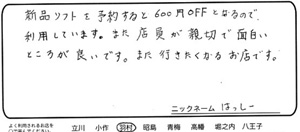 新品ソフトを予約すると600円OFFとなるので、
利用しています。また店員が親切で面白い
ところが良いです。また行きたくなるお店です。
ニックネーム はっしー
よく利用されるお店を
○で囲んでください。
立川 小作 羽村 昭島 青梅 高幡 堀之内 八王子